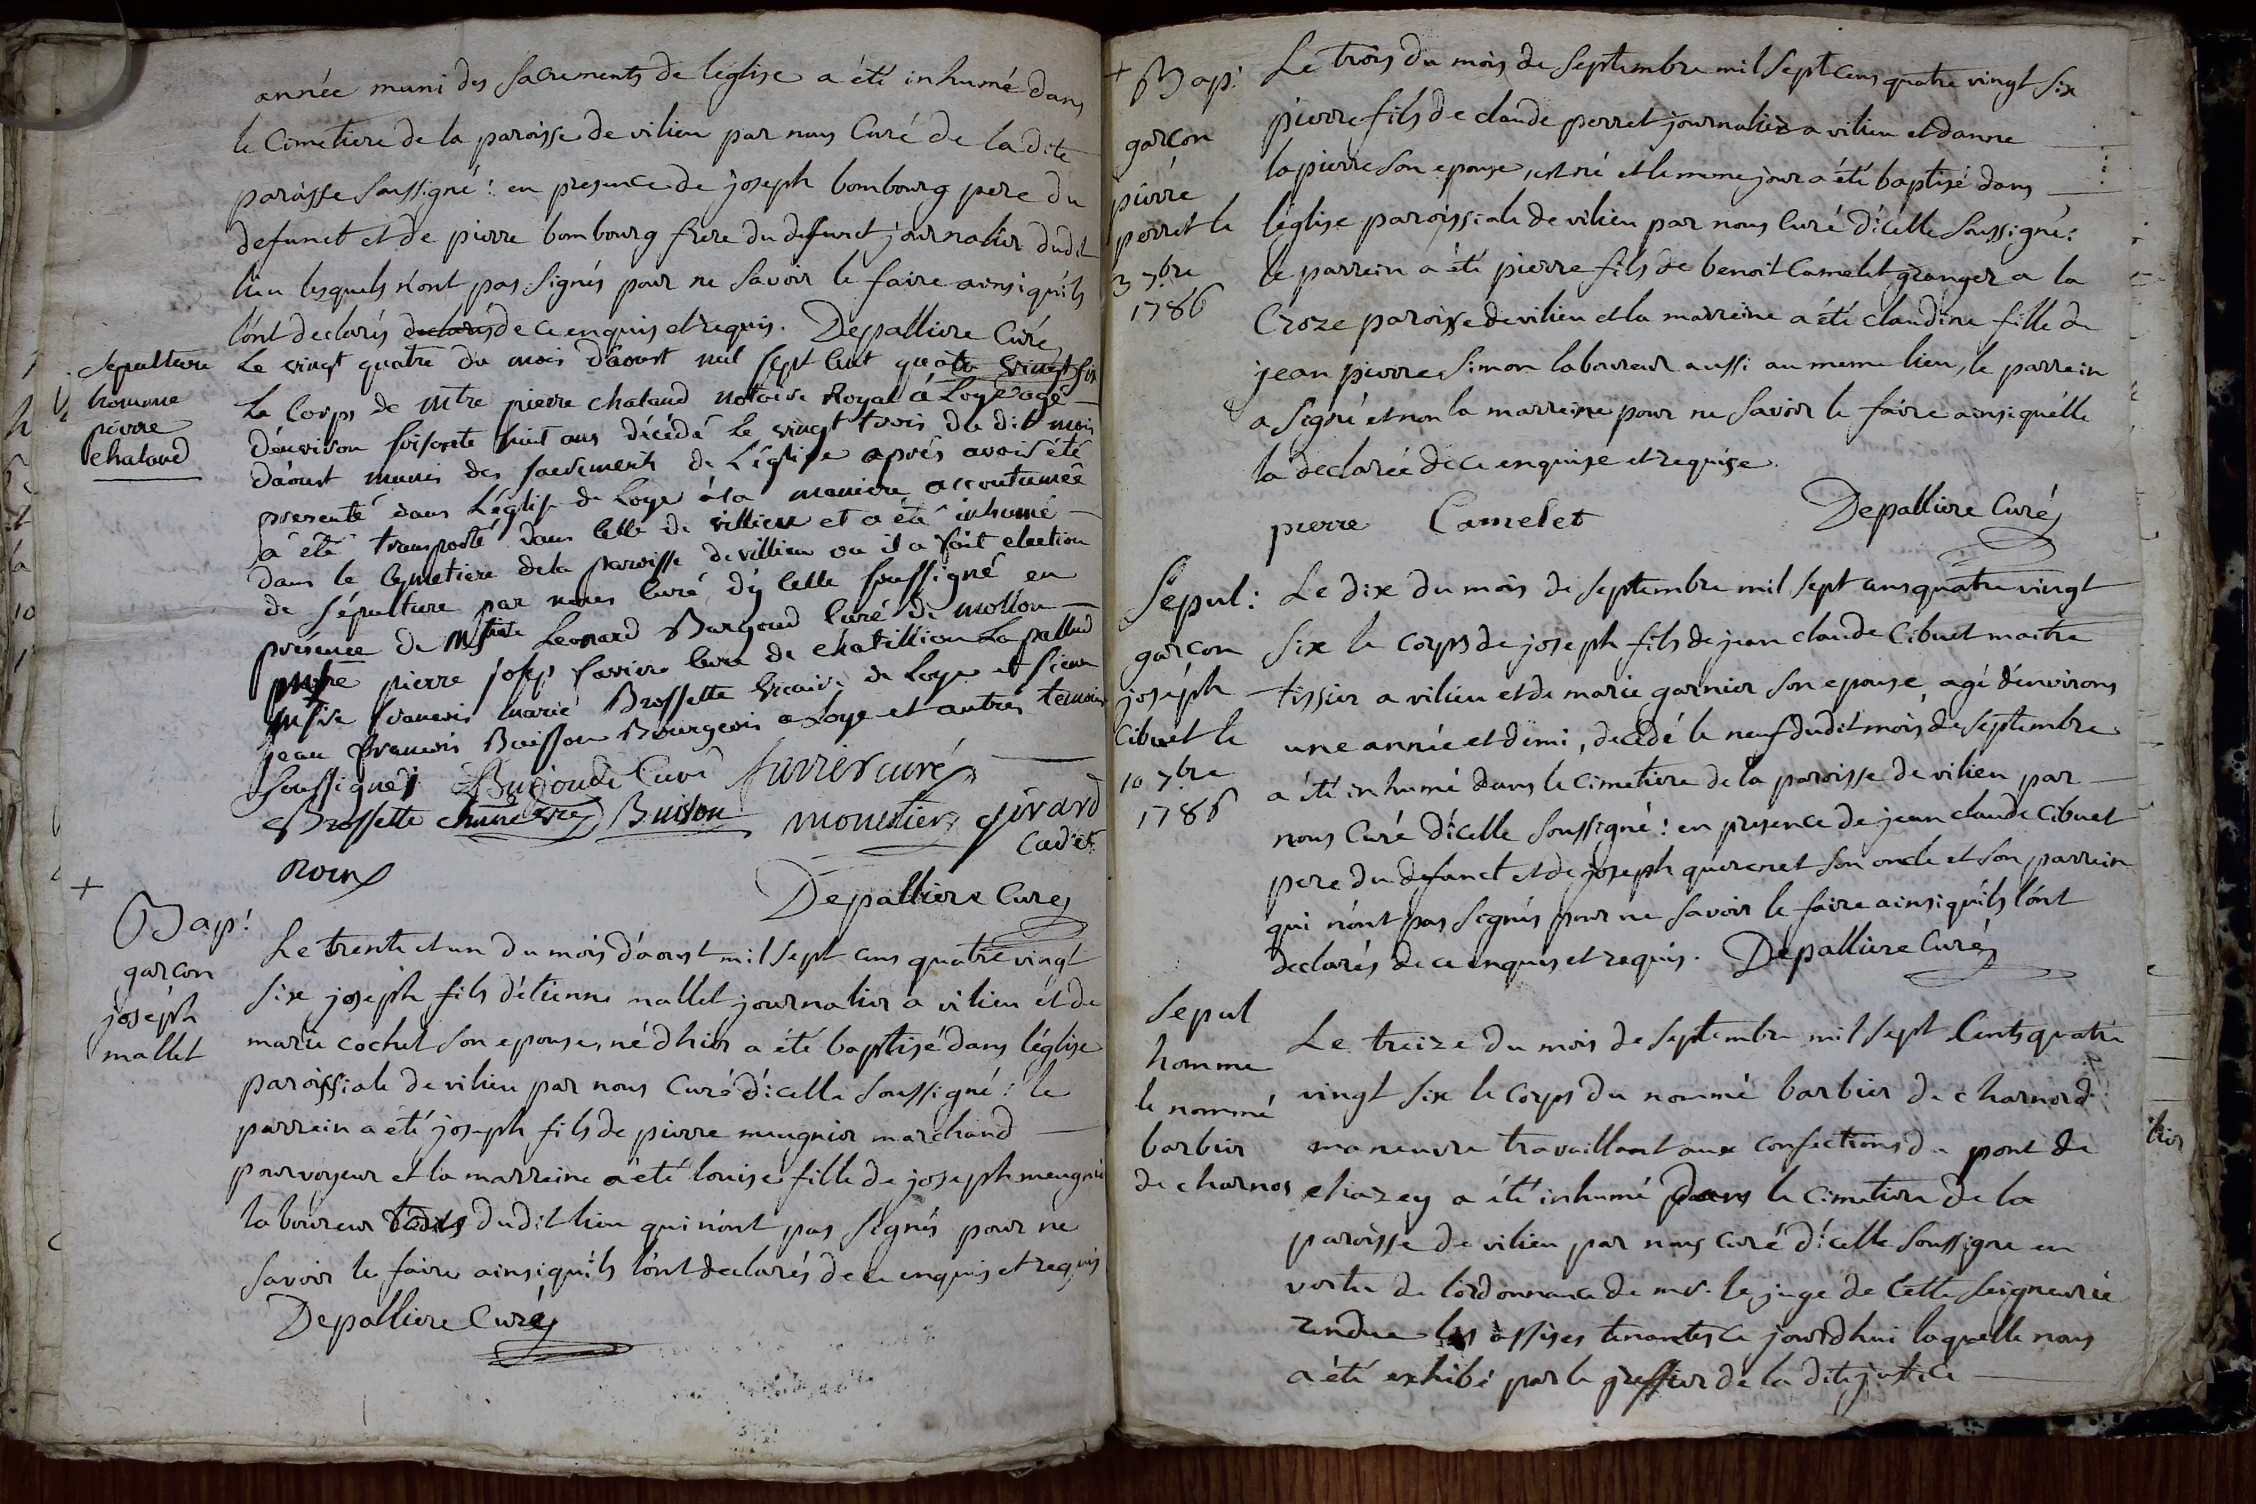 année muni des sacrements de léglise a été inhumé dans
le cimetiere de la paroisse de vilieu par nous Curé de la dite
paroisse soussigné : en presence de joseph bombourg pere du
defunct et de pierre bombourg frere du defunct journalier dudit
lieu lesquels n'ont pas signés pour ne savoir le faire ainsi quils
lónt declarés declarés de ce enquis et requis. Depalliere Curé
sepulture
homme
pierre
chaland
Le vingt quatre du mois d'aoust mil sept cent quatre vingt six
Le Corps de Mtre pierre chaland notaire Royal à Loye agé
dénviron soisante huit ans décédé le vingt trois du dit mois
dáoust muni des sacrements de L'église aprés avoir été
presenté dans L'église de Loye à la maniere accoutumée
a été transporté dans celle de villieu et a été inhumé
dans le Cymetiere dela paroisse de villieu ou il a fait election
de sépulture par nous curé d'ycelle soussigné en
présence de Mssire Leonard Burjoud curé de mollon
pierre josep favrier curé de chatillion La pallud
Mssire francois marie Brossette vicaire de Loye et sieur
jean francois Buisson Bourgeois a Loye et autres temoins
soussignés Burjoud Curé favrier curé
Brossette Buison monestier girard
cadet
Roux
Depalliere Curé
+
Bap!
garcon
joseph
mallet
Le trente et un du mois dáoust mil sept cens quatre vingt
six joseph fils d'etienne mallet journalier a vilieu et de
marie cochet son epouse, né d hier a été baptisé dans léglise
paroissiale de vilieu par nous Curé d'icelle soussigné : le
parrein a été joseph fils de pierre meugnier marchand
pourvoyeur et la marreine a été louise fille de joseph meugnier
laboureur tous dudit lieu qui n'ont pas signés pour ne
savoir le faire ainsi quils lónt declarés de ce enquis et requis
Depalliere Curé
+
Bap!
garcon
pierre
perret le
3 7.bre
1786
Le trois du mois de septembre mil sept cens quatre vingt six
pierre fils de claude perret journalier a vilieu et d'anne
lapierre son epouse, est né et le meme jour a été baptisé dans
léglise paroissiale de vilieu par nous Curé d'icelle soussigné :
le parrein a été pierre fils de benoit Camelet granger a la
Croze paroisse de vilieu et la marreine a été claudine fille de
jean pierre simon laboureur aussi au meme lieu, le parrein
a signé et non la marreine pour ne savoir le faire ainsi quélle
la declarée de ce enquise et requise
pierre Camelet Depalliere Curé
Sepul :
garcon
joseph
Cibuet le
10 7.bre
1786
Le dix du mois de septembre mil sept cens quatre vingt
six le corps de joseph fils de jean claude Cibuet maitre
tissier a vilieu et de marie garnier son epouse, agé d'environs
une année et demi, decedé le neuf dudit mois de septembre
a été inhumé dans le cimetiere de la paroisse de vilieu par
nous Curé d'icelle soussigné : en presence de jean claude Cibuet
pere du defunct et de joseph son oncle et son parrein
qui n'ont pas signés pour ne savoir le faire ainsi quils lónt
declarés de ce enquis et requis. Depalliere Curé
Sepul
homme
le nommé
barbier
de charnos
Le treize du mois de septembre mil sept cents quatre
vingt six le corps du nommé barbier de charnord
maneuvre travaillant aux confections du pont de
chazey a été inhumé dans le cimetiere de la
paroisse de vilieu par nous curé d'icelle soussigné en
vertu de l'ordonnance de mr. le juge de cette seigneurie
rendue les assises tenantes ce jourdhui laquelle nous
a été exhibé par le greffier de la dite justice